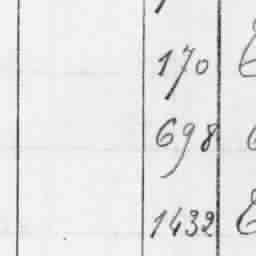 170
698
1432